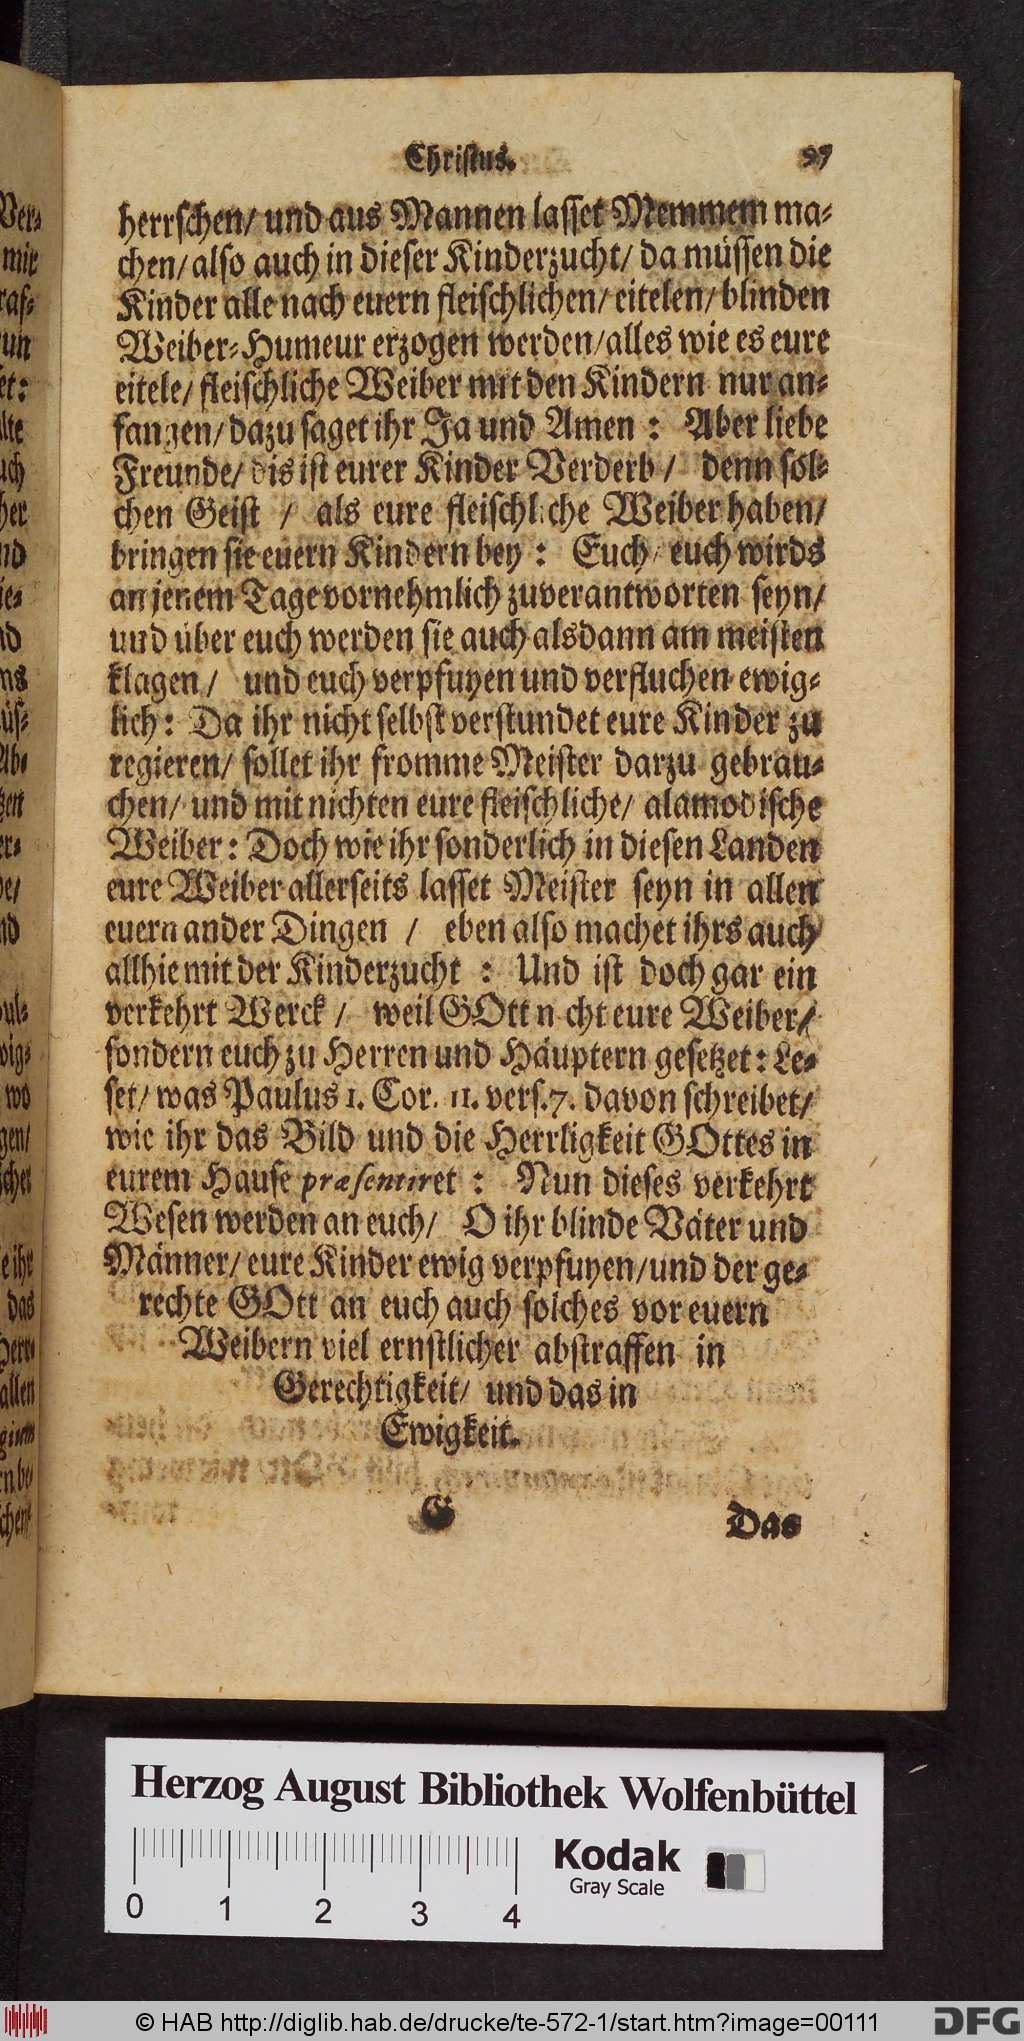 Christus. 97
herrschen/ und aus Mannen lasset Memmem ma-
chen/ also auch in dieser Kinderzucht/ da müssen die
Kinder alle nach euern fleischlichen/ eitelen/ blinden
Weiber-Humeur erzogen werden/ alles wie es eure
eitele/ fleischliche Weiber mit den Kindern nur an-
fangen/ dazu saget ihr Ja und Amen : Aber liebe
Freunde/ dis ist eurer Kinder Verderb / denn sol-
chen Geist / als eure fleischliche Weiber haben/
bringen sie euern Kindern bey : Euch/ euch wirds
an jenem Tage vornehmlich zuverantworten seyn/
und über euch werden sie auch alsdann am meisten
klagen / und euch verpfuyen und verfluchen ewig-
lich : Da ihr nicht selbst verstundet eure Kinder zu
regieren/ sollet ihr fromme Meister darzu gebrau-
chen/ und mit nichten eure fleischliche/ alamodische
Weiber : Doch wie ihr sonderlich in diesen Landen
eure Weiber allerseits lasset Meister seyn in allen
euern ander Dingen / eben also machet ihrs auch
allhie mit der Kinderzucht : Und ist doch gar ein
verkehrt Werck / weil GOtt n cht eure Weiber/
sondern euch zu Herren und Häuptern gesetzet : Le-
set/ was Paulus 1. Cor. 11. vers. 7. davon schreibet/
wie ihr das Bild und die Herrligkeit GOttes in
eurem Hause præsentiret : Nun dieses verkehrt
Wesen werden an euch/ O ihr blinde Väter und
Männer/ eure Kinder ewig verpfuyen/ und der ge-
rechte GOtt an euch auch solches vor euern
Weibern viel ernstlicher abstraffen in
Gerechtigkeit/ und das in
Ewigkeit.
G Das
Herzog August Bibliothek Wolfenbüttel
0 1 2 3 4
Kodak
Gray Scale
© HAB http://diglib.hab.de/drucke/te-572-1/start.htm?image=00111
DFG